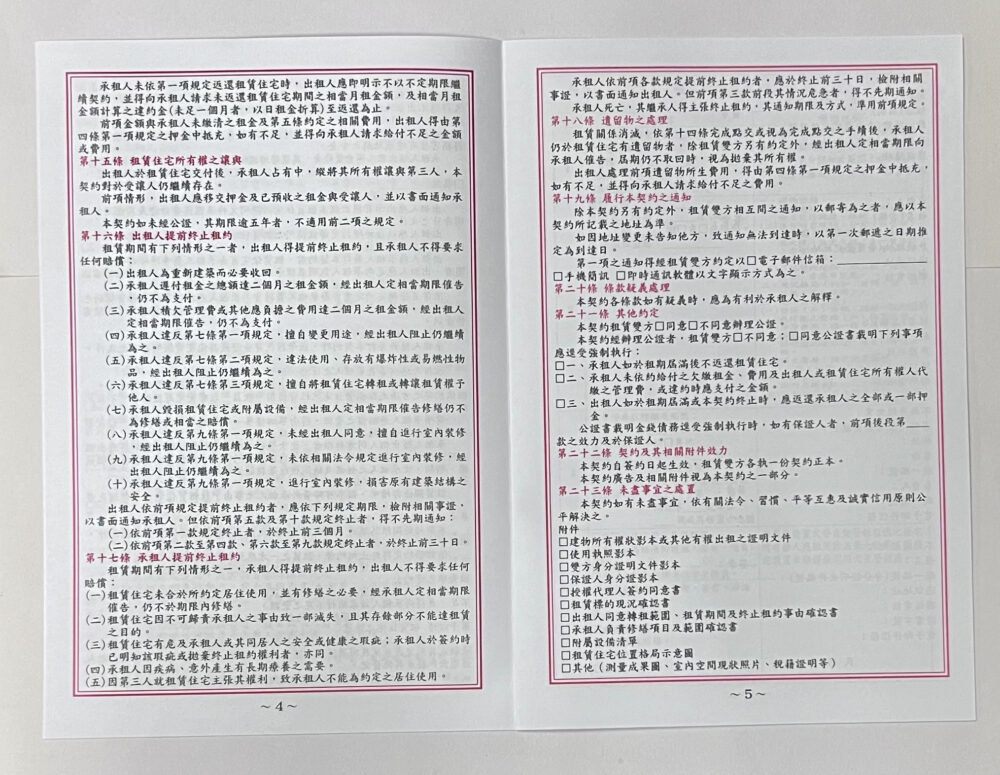 承租人未依第一項規定返還租賃住宅時，出租人應即明示不以不定期限繼
續契約，並得向承租人請求未返還租賃住宅期間之相當月租金額，及相當月租
金額計算之違約金(未足一個月者，以日租金折算)至返還為止。
前項金額與承租人未繳清之租金及第五條約定之相關費用，出租人得由第
四條第一項規定之押金中抵充，如有不足，並得向承租人請求給付不足之金額
或費用。
第十五條 租賃住宅所有權之讓與
出租人於租賃住宅交付後，承租人占有中，縱將其所有權讓與第三人，本
契約對於受讓人仍繼續存在。
前項情形，出租人應移交押金及已預收之租金與受讓人，並以書面通知承
租人。
本契約如未經公證，其期限逾五年者，不適用前二項之規定。
第十六條 出租人提前終止租約
租賃期間有下列情形之一者，出租人得提前終止租約，且承租人不得要求
任何賠償：
(一)出租人為重新建築而必要收回。
(二)承租人遲付租金之總額達二個月之租金額，經出租人定相當期限催告
，仍不為支付。
(三)承租人積欠管理費或其他應負擔之費用達二個月之租金額，經出租人
定相當期限催告，仍不為支付。
(四)承租人違反第七條第一項規定，擅自變更用途，經出租人阻止仍繼續
為之。
(五)承租人違反第七條第二項規定，違法使用、存放有爆炸性或易燃性物
品，經出租人阻止仍繼續為之。
(六)承租人違反第七條第三項規定，擅自將租賃住宅轉租或轉讓租賃權子
他人。
(七)承租人毀損租賃住宅或附屬設備，經出租人定相當期限催告修繕仍不
為修繕或相當之賠償。
(八)承租人違反第九條第一項規定，未經出租人同意，擅自進行室內裝修
，經出租人阻止仍繼續為之。
(九)承租人違反第九條第一項規定，未依相關法令規定進行室內裝修，經
出租人阻止仍繼續為之。
(十)承租人違反第九條第一項規定，進行室內裝修，損害原有建築結構之
安全。
出租人依前項規定提前終止租約者，應依下列規定期限，檢附相關事證，
以書面通知承租人。但依前項第五款及第十款規定終止者，得不先期通知：
(一)依前項第一款規定終止者，於終止前三個月。
(二)依前項第二款至第四款、第六款至第九款規定終止者，於終止前三十日。
第十七條 承租人提前終止租約
租賃期間有下列情形之一，承租人得提前終止租約，出租人不得要求任何
賠償：
(一)租賃住宅未合於所約定居住使用，並有修繕之必要，經承租人定相當期限
催告，仍不於期限內修繕。
(二)租賃住宅因不可歸責承租人之事由致一部滅失，且其存餘部分不能達租賃
之目的。
(三)租賃住宅有危及承租人或其同居人之安全或健康之瑕疵；承租人於簽約時
已明知該瑕疵或拋棄終止租約權利者，亦同。
(四)承租人因疾病、意外產生有長期療養之需要。
(五)因第三人就租賃住宅主張其權利，致承租人不能為約定之居住使用。
～4～
承租人依前項各款規定提前終止租約者，應於終止前三十日，檢附相關
事證，以書面通知出租人。但前項第三款前段其情況危急者，得不先期通知。
承租人死亡，其繼承人得主張終止租約，其通知期限及方式，準用前項規定。
第十八條 遺留物之處理
租賃關係消滅，依第十四條完成點交或視為完成點交之手續後，承租人
仍於租賃住宅有遺留物者，除租賃雙方另有約定外，經出租人定相當期限向
承租人催告，屆期仍不取回時，視為拋棄其所有權。
出租人處理前項遺留物所生費用，得由第四條第一項規定之押金中抵充，
如有不足，並得向承租人請求給付不足之費用。
第十九條 履行本契約之通知
除本契約另有約定外，租賃雙方相互間之通知，以郵寄為之者，應以本
契約所記載之地址為準。
如因地址變更未告知他方，致通知無法到達時，以第一次郵遞之日期推
定為到達日。
第一項之通知得經租賃雙方約定以□電子郵件信箱：
□手機簡訊 □即時通訊軟體以文字顯示方式為之。
第二十條 條款疑義處理
本契約各條款如有疑義時，應為有利於承租人之解釋。
第二十一條 其他約定
本契約租賃雙方□同意□不同意辦理公證。
本契約經辦理公證者，租賃雙方□不同意；□同意公證書載明下列事項
應逕受強制執行：
□一、承租人如於租期屆滿後不返還租賃住宅。
□二、承租人未依約給付之欠繳租金、費用及出租人或租賃住宅所有權人代
繳之管理費，或違約時應支付之金額。
□三、出租人如於租期屆滿或本契約終止時，應返還承租人之全部或一部押
金。
公證書載明金錢債務逕受強制執行時，如有保證人者，前項後段第____
款之效力及於保證人。
第二十二條 契約及其相關附件效力
本契約自簽約日起生效，租賃雙方各執一份契約正本。
本契約廣告及相關附件視為本契約之一部分。
第二十三條 未盡事宜之處置
本契約如有未盡事宜，依有關法令、習慣、平等互惠及誠實信用原則公
平解決之。
附件
□建物所有權狀影本或其他有權出租之證明文件
□使用執照影本
□雙方身分證明文件影本
□保證人身分證影本
□授權代理人簽約同意書
□租賃標的現況確認書
□出租人同意轉租範圍、租賃期間及終止租約事由確認書
□承租人負責修繕項目及範圍確認書
□附屬設備清單
□租賃住宅位置格局示意圖
□其他(測量成果圖、室內空間現狀照片、稅籍證明等)
～5～